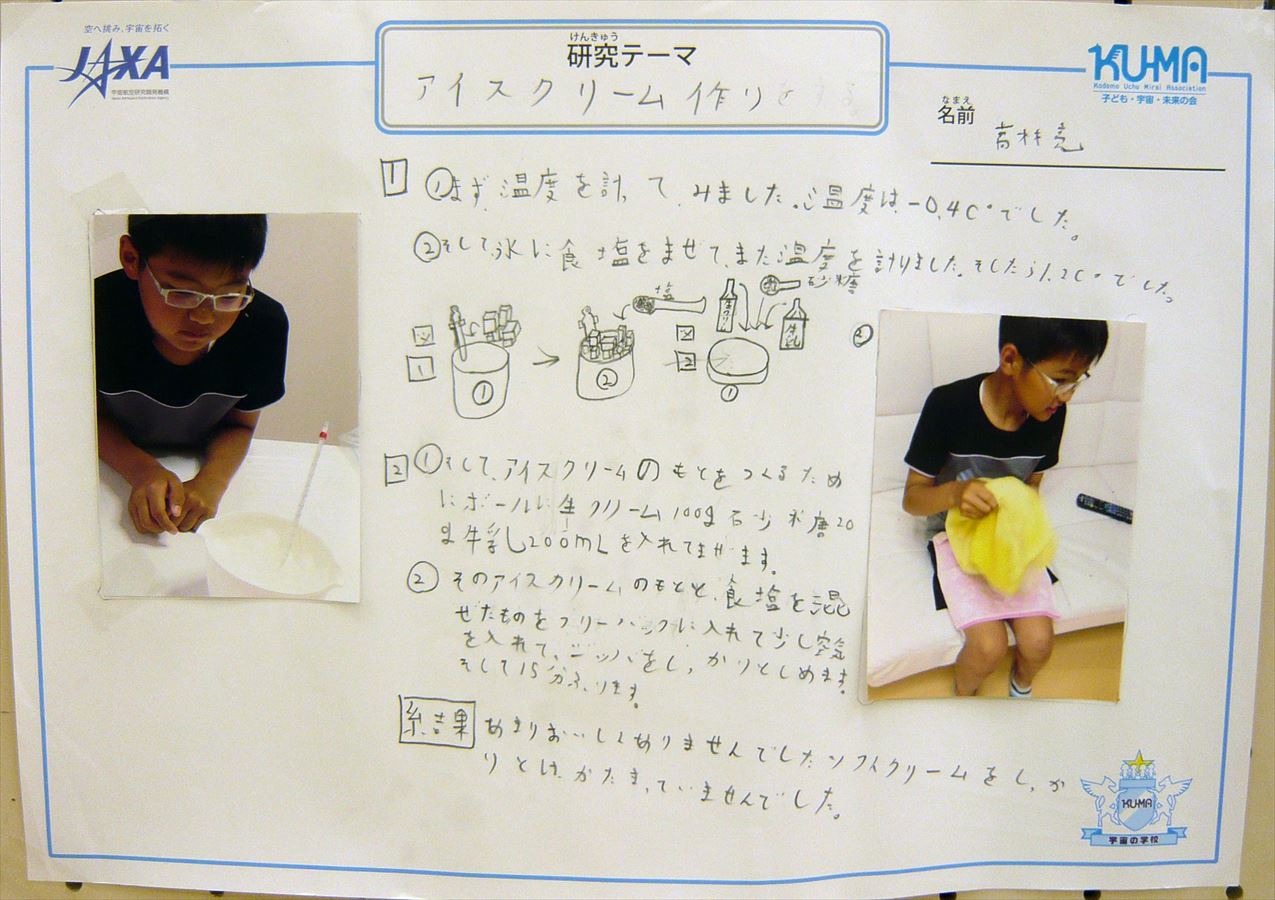 空へ挑み、宇宙を拓く
JAXA
宇宙航空研究開発機構
Japan Aerospace Exploration Agency
けんきゅう
研究テーマ
アイスクリーム作りをする
KU-MA
Kodomo Uchu Mirai Association
子ども・宇宙・未来の会
なまえ
名前
1 ①まず、温度を計って、みました。温度は、-0.4C°でした。
②そして、氷に食塩をまぜて、また温度を計りました。そしたら1.2C°でした。
塩
砂糖
生クリーム
牛乳
図
1
①
②
図
2
①
②
2 ①そして、アイスクリームのもとをつくるため
にボールに生クリーム100g砂糖20
g牛乳200mLを入れてまぜます。
② そのアイスクリームのもとと、食塩を混
ぜたものをフリーバックに入れて少し空気
を入れて、ジッパをしっかりとしめます。
そして15分ふります。
結果 あまりおいしくありませんでしたソフトクリームをしっか
りとは、かたまっていませんでした。
KU-MA
宇宙の学校